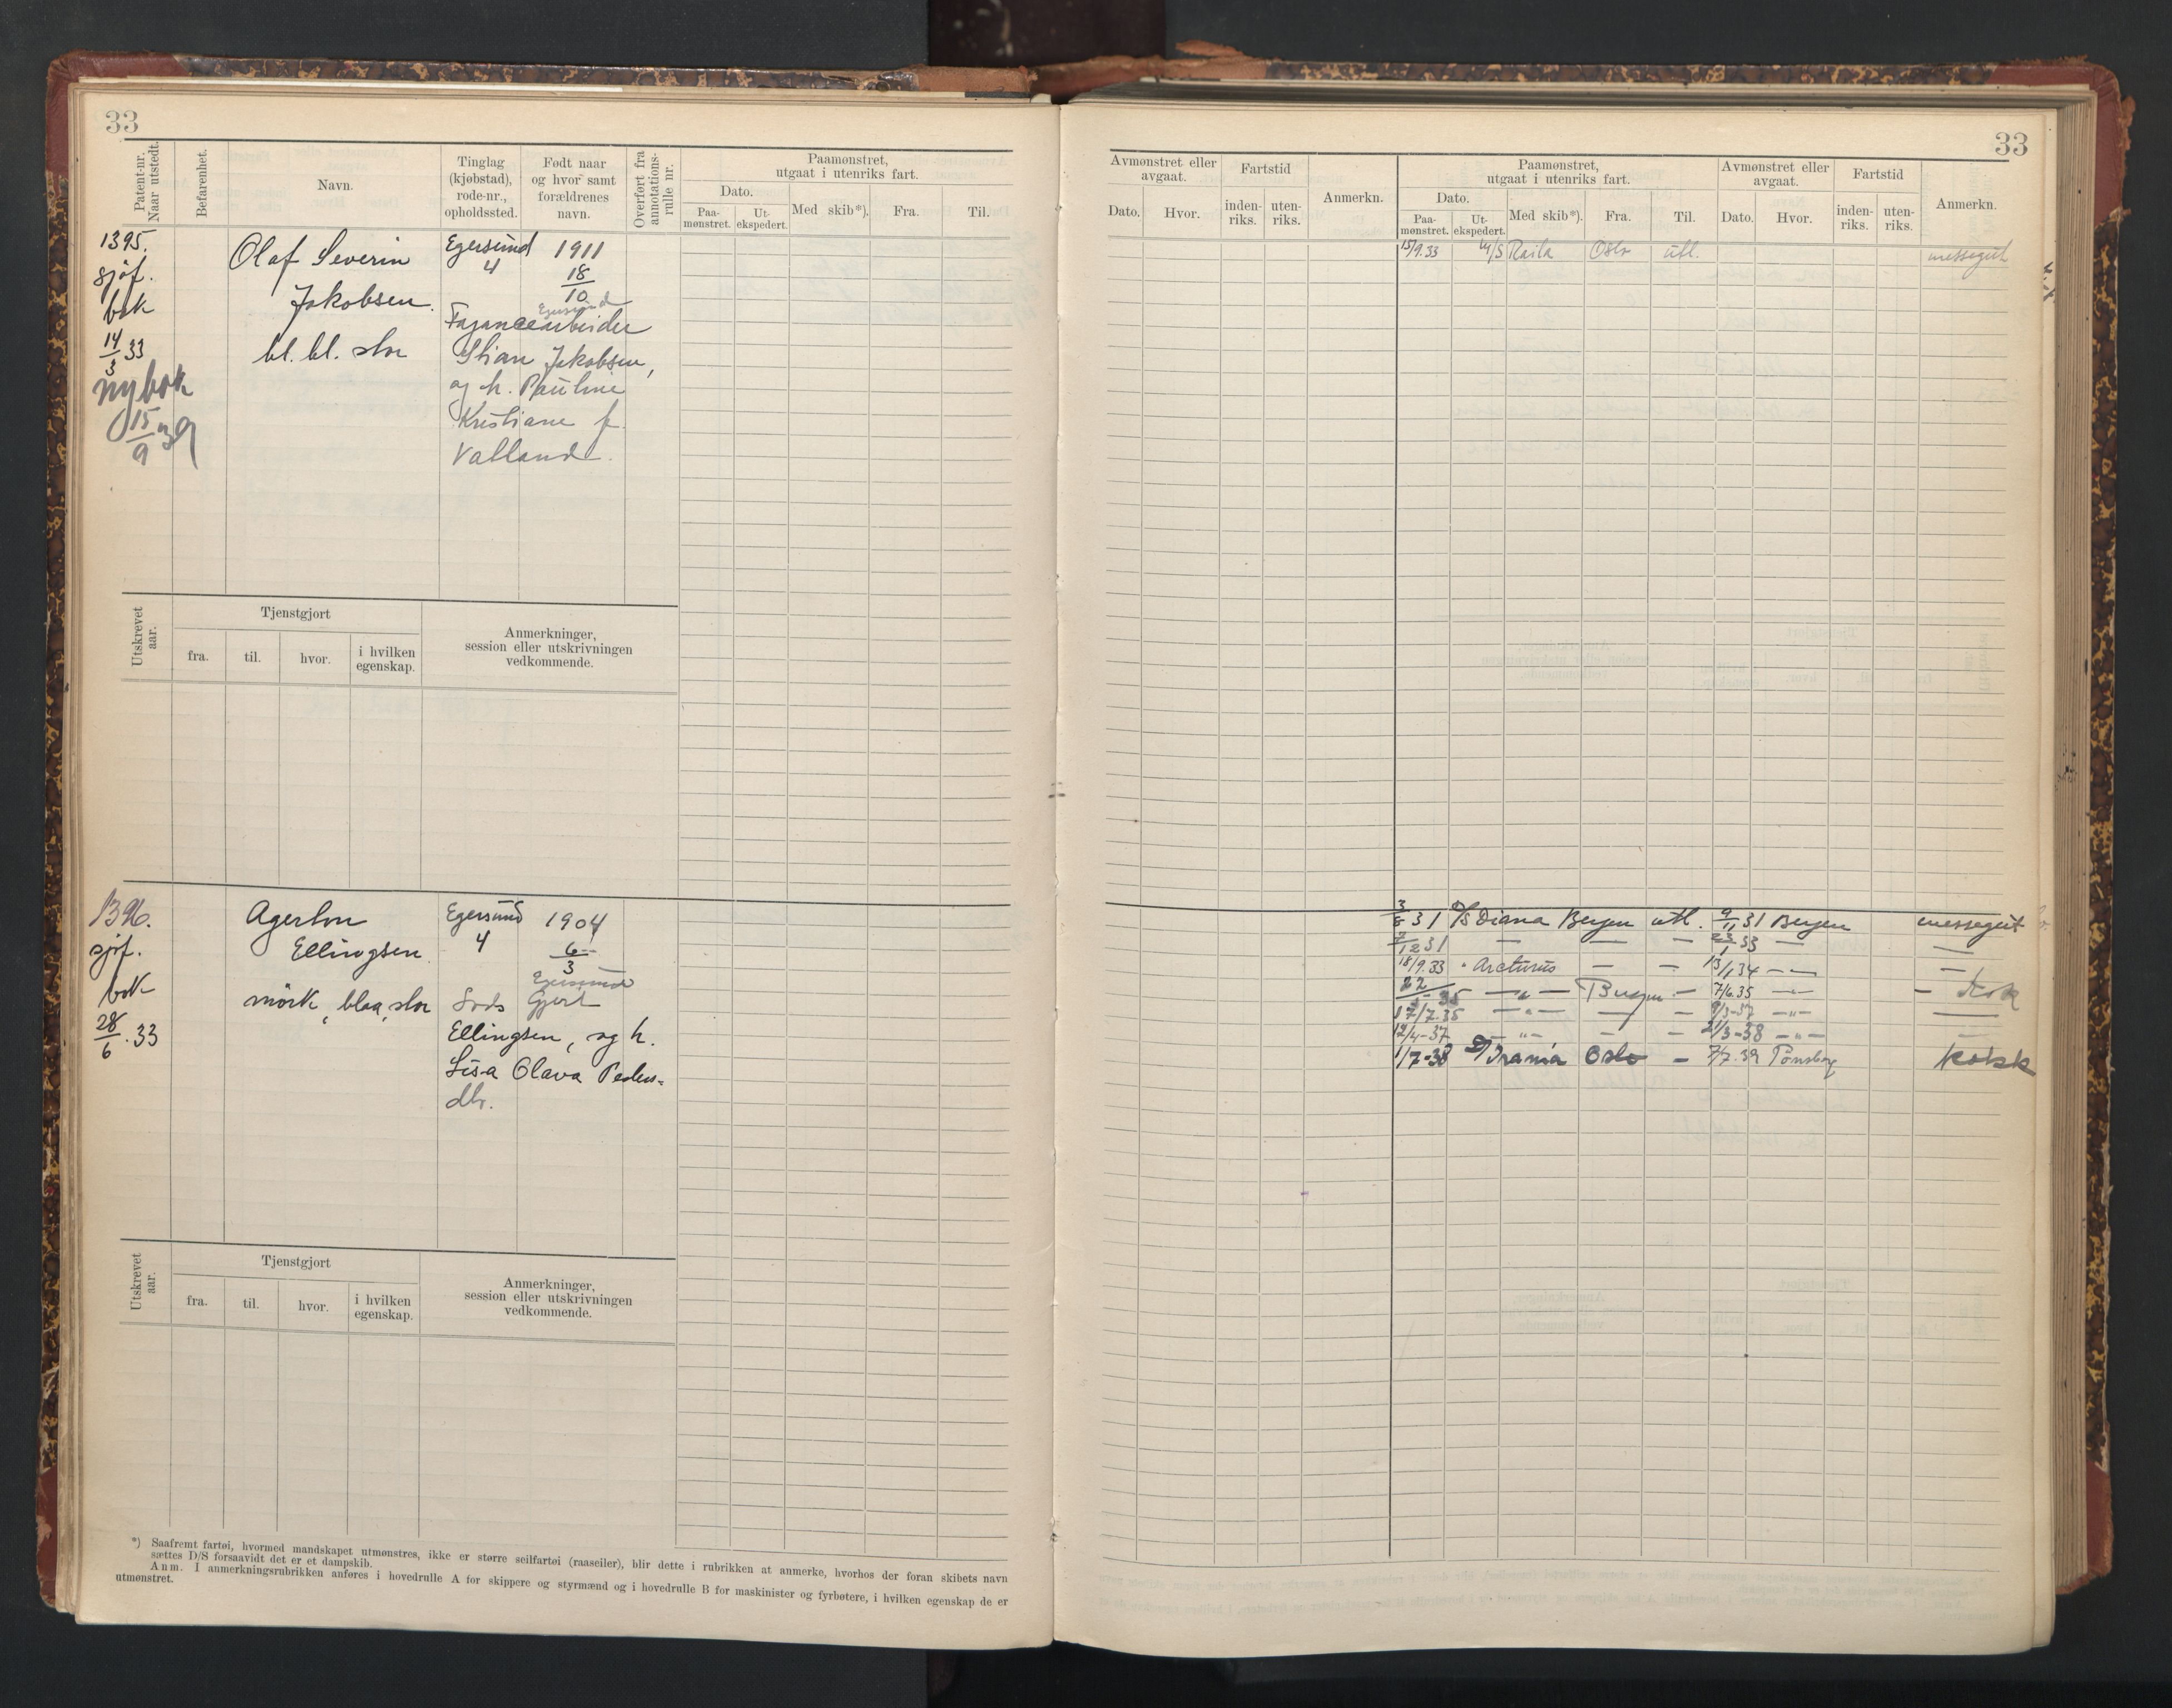 33
33
Patent-nr. Naar utstedt.
Befarenhet.
Navn.
Tinglag (kjøbstad), rode-nr., opholdssted.
Født naar og hvor samt forældrenes navn.
Overført fra annotations-rulle nr.
Paamønstret, utgaat i utenriks fart.
Dato.
Paa-mønstret.
Ut-ekspedert.
Med skib*).
Fra.
Til.
Avmønstret eller avgaat.
Dato.
Hvor.
Fartstid
inden-riks.
uten-riks.
Anmerkn.
Paamønstret, utgaat i utenriks fart.
Dato.
Paa-mønstret.
Ut-ekspedert.
Med skib*).
Fra.
Til.
Avmønstret eller avgaat.
Dato.
Hvor.
Fartstid
inden-riks.
uten-riks.
Anmerkn.
1395.
sjøf.
bok
14/3 33
ny bok
15/9 39
Olaf Severin
Jakobsen.
bl. bl. stor
Egersund
4
1911
18/10
Egersund
Fajancearbeider
Stian Jakobsen,
og h. Pauline
Kristiane f.
Valland.
15/9.33 M/S Raila Oslo utl. messegut
Utskrevet aar.
Tjenstgjort
fra.
til.
hvor.
i hvilken egenskap.
Anmerkninger,
session eller utskrivningen
vedkommende.
1396.
sjøf.
bok
28/6.33
Agerton
Ellingsen.
mörk, blaa, stor
Egersund
4
1904
6/3
Egersund
Gjert
Ellingsen, og h.
Lisa Olava Peders-
dtr.
3/8 31 D/S Diana Bergen utl. 9/11 31 Bergen messegut
7/12 31 — — — 23/1 33 — —
18/9.33 " Arcturus — — 13/1 34 — —
22/5-35 — " — Bergen — 7/6.35 — — Kok
17/7.35 — " — — — 9/3-37 — " — —
12/4-37 — " — — — 21/3-38 — " — —
1/7-38 D/ Irania Oslo — 7/7.39 Tønsberg Kokk
Utskrevet aar.
Tjenstgjort
fra.
til.
hvor.
i hvilken egenskap.
Anmerkninger,
session eller utskrivningen
vedkommende.
*) Saafremt fartøi, hvormed mandskapet utmønstres, ikke er større seilfartøi (raaseiler), blir dette i rubrikken at anmerke, hvorhos der foran skibets navn
sættes D/S forsaavidt det er et dampskib.
Anm. I anmerkningsrubrikken anføres i hovedrulle A for skippere og styrmænd og i hovedrulle B for maskinister og fyrbøtere, i hvilken egenskap de er
utmønstret.